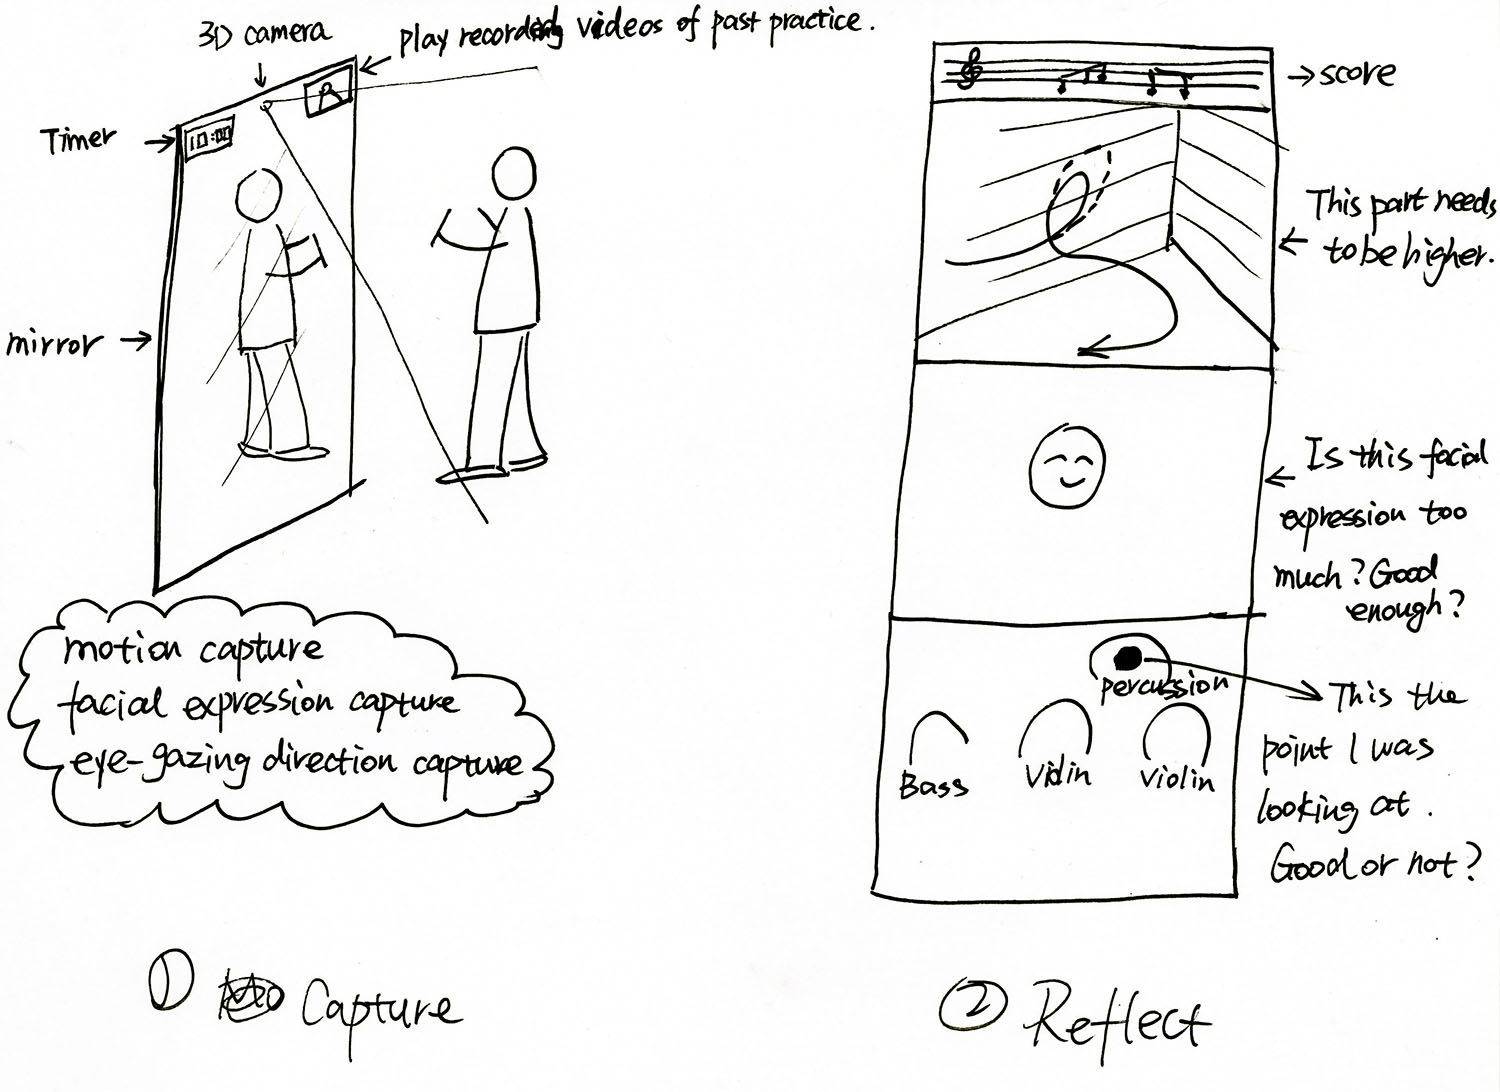 3D camera
play recording videos of past practice.
Timer
10:00
mirror
motion capture
facial expression capture
eye-gazing direction capture
① Capture
score
This part needs
to be higher.
Is this facial
expression too
much? Good
enough?
percussion
Bass
Violin
violin
This the
point I was
looking at.
Good or not?
② Reflect